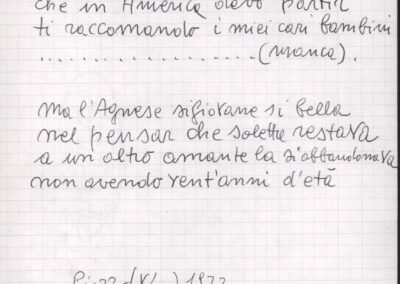 che in America devo partir
ti raccomando i miei cari bambini
.................(manca).
Ma l'Agnese sigiovane si bella
nel pensar che soletta restava
a un altro amante la s'abbandonava
non avendo vent'anni d'età
1933